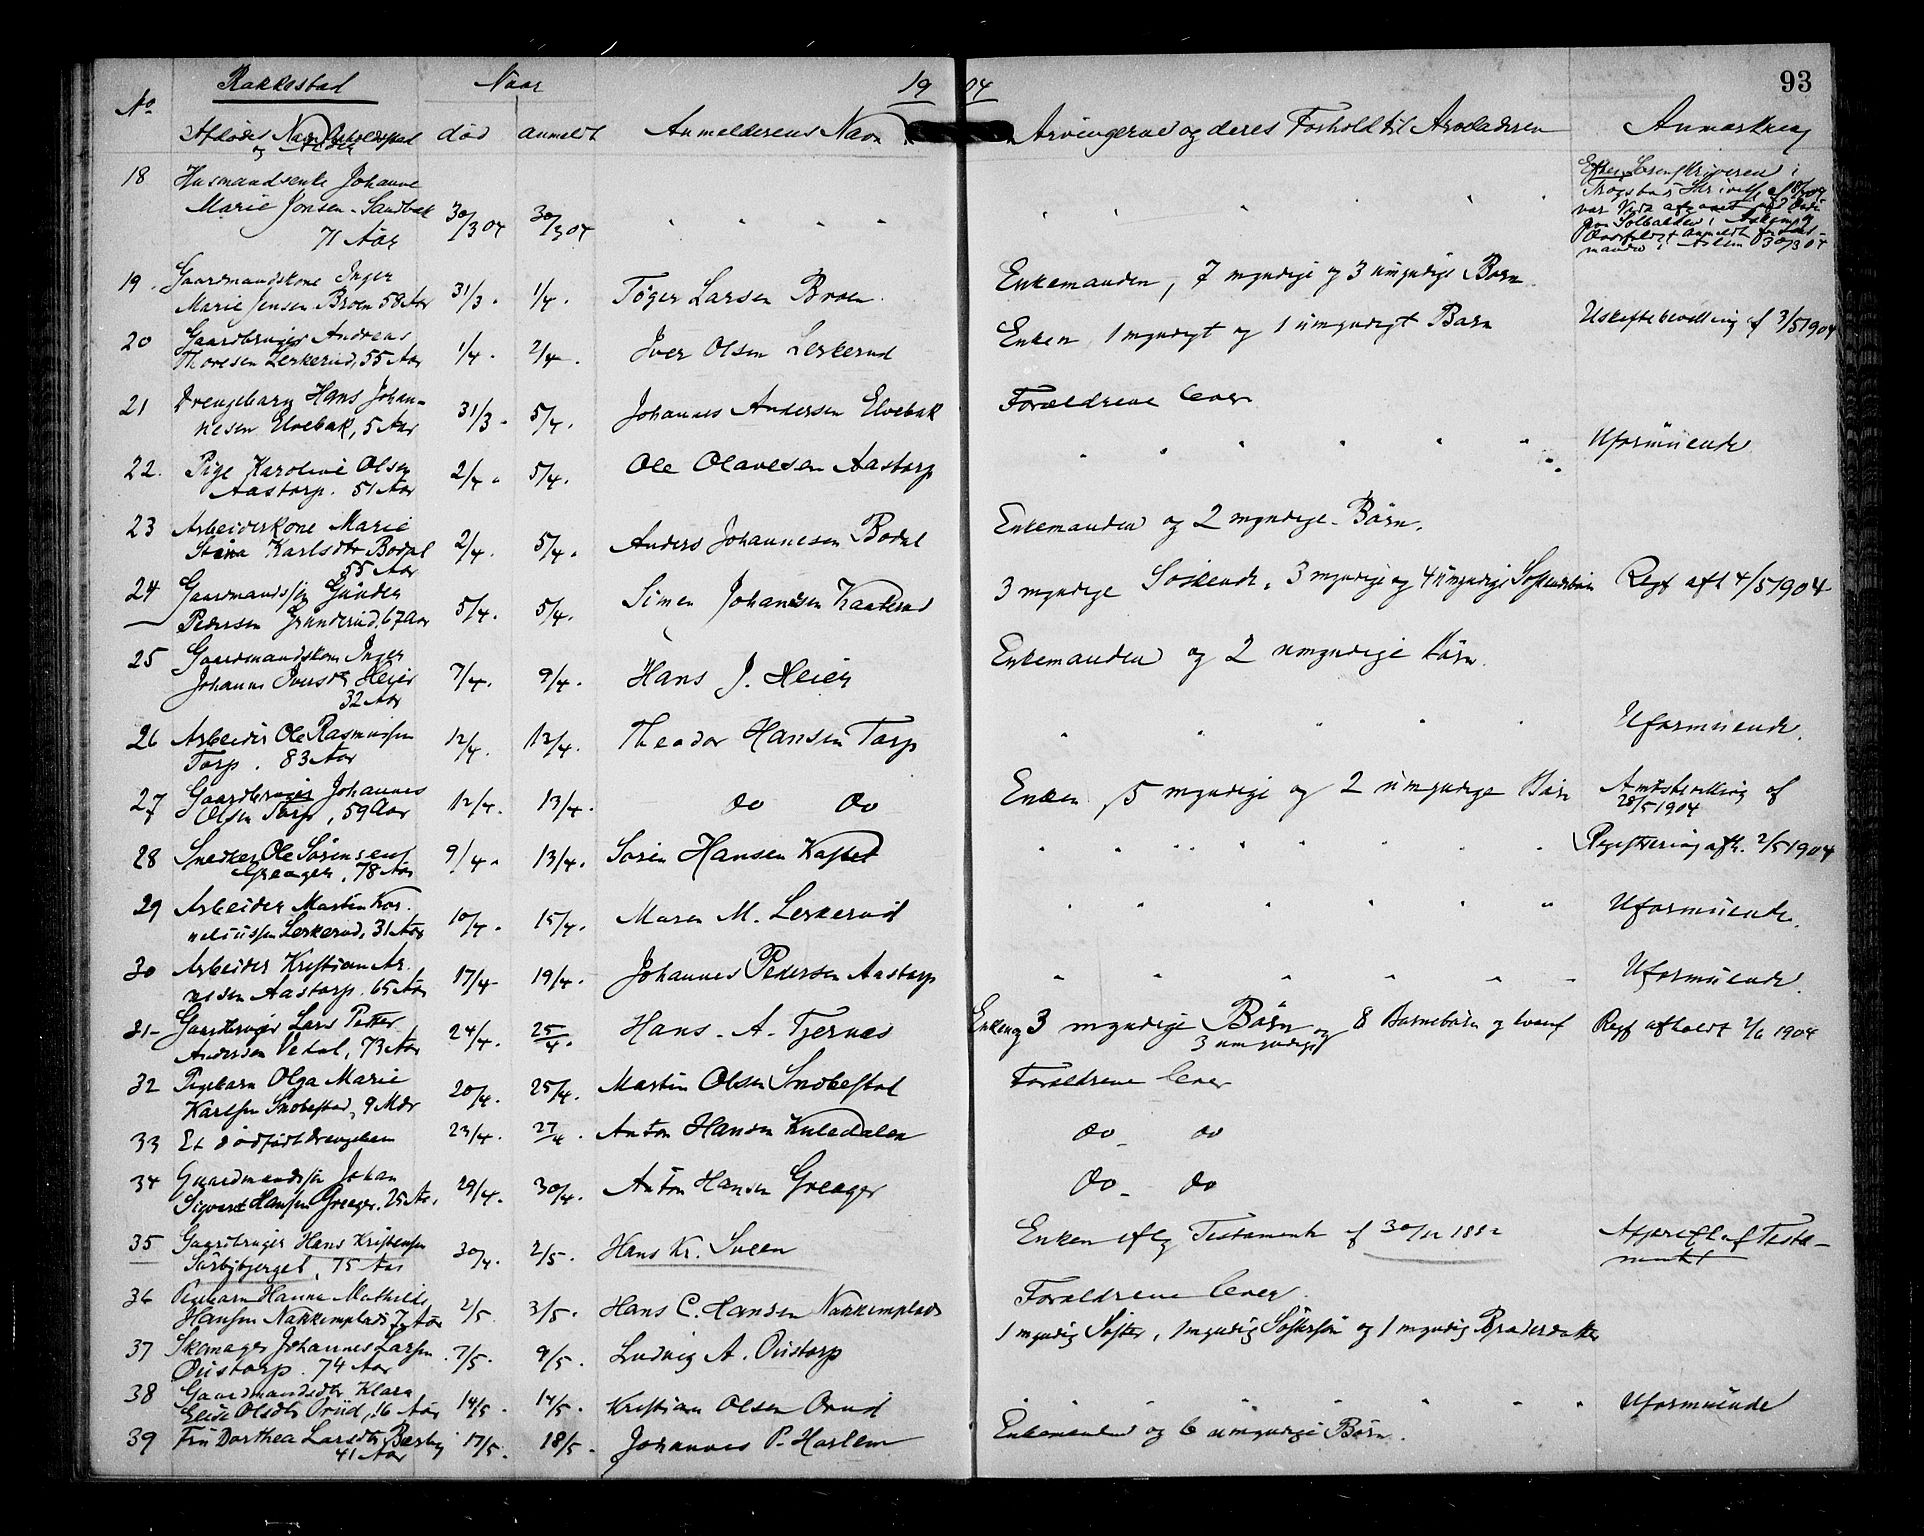 93
Rakkestad Naar 1904
No
Afdødes Navn død anmeldt Anmelderens Navn Arvingerne og deres Forhold til Arveladeren Anmærkning
og Alder
18 Husmandsenke Johanne
Marie Jonsen Sandbæk 30/3 04 30/3 04 " " " "
71 Aar
19. Gaardmandskone Inger
Marie Jensen Broen 58 Aar 31/3. 1/4. Töger Larsen Broen. Enkemanden, 7 myndige og 3 umyndige Børn.
20 Gaardbruger Andreas
Thoresen Lerkerud, 55 Aar 1/4. 2/4. Iver Olsen Lerkerud Enken, 1 myndigt og 1 umyndigt Barn Uskiftebevilling af 3/5 1904
21 Drengebarn Hans Johan-
nesen Elvebak, 5 Aar 31/3. 5/4. Johannes Andersen Elvebak Forældrene lever
22. Pige Karoline Olsen
Aastorp. 51 Aar 2/4. 5/4. Ole Olavesen Aastorp " " " " Uformuende
23 Arbeiderkone Marie
Stina Karlsdtr Bodal 2/4. 5/4. Anders Johannesen Bodal Enkemanden og 2 myndige Børn.
55 Aar
24 Gaardmandssøn Gunder
Pedersen Grunderud, 67 Aar 5/4. 5/4. Simen Johansen Kaaterud 3 myndige Söskende, 3 myndige og 4 umyndige Søskendebørn Regf afh 4/5 1904
25 Gaardmandskone Inger
Johanne Iversdtr Heier 7/4. 9/4. Hans J. Heier Enkemanden og 2 umyndige Børn.
32 Aar
26 Arbeider Ole Rasmussen
Torp. 83 Aar 12/4. 13/4. Theodor Hansen Torp " " " " " Uformuende.
27 Gaardbruger Johannes
Olsen Torp, 59 Aar 12/4. 13/4. do do Enken, 5 myndige og 2 umyndige Børn Amtsbevilling af
28/5 1904
28 Snedker Ole Sörensen
Greager, 78 Aar 9/4. 13/4. Sören Hansen Kastet " " " " " " Registrering afh. 2/5 1904
29 Arbeider Martin Kor-
neliussen Lerkerud, 31 Aar 10/4. 15/4. Maren M. Lerkerud " " " " " " Uformuende.
30 Arbeider Kristian Ar-
nesen Aastorp. 65 Aar 17/4. 19/4. Johannes Pedersen Aastorp " " " " " " Uformuende.
31- Gaardbruger Lars Petter
Andersen Vetal, 73 Aar 24/4. 25/4. Hans A. Tjernæs Enken og 3 myndige Børn og 8 Barnebørn Regf afholdt 2/6 1904
3 umyndige
32 Pigebarn Olga Marie
Karlsen Snobestad, 9 Mdr 20/4. 25/4. Martin Olsen Snobestad Forældrene lever
33 Et dødfødt Drengebarn 23/4. 27/4. Anton Hansen Kuledalen do do
34 Gaardmandssøn Johan
Sigvart Hansen Greager, 25 Aar. 29/4. 30/4. Anton Hansen Greager do do
35 Gaardbruger Hans Kristensen
Sörbybjerget, 75 Aar 30/4. 2/5. Hans Kr. Sveen Enken iflg Testamente af 30/12 1882 Afskrift af Testa-
mentet
36 Pigebarn Hanna Mathilde
Hansen Nakkemplads 7 Aar 2/5. 3/5. Hans C. Hansen Nakkemplads Forældrene lever.
37 Skomager Johannes Larsen
Oustorp. 74 Aar 7/5. 9/5. Ludvig A. Oustorp 1 myndig Søster, 1 myndig Søstersøn og 1 myndig Broderdatter
38 Gaardmandsdtr Klara
Elise Olsdtr Orud, 16 Aar 14/5. 14/5. Kristian Olsen Orud " " " " " Uformuende
39 Fru Dorthea Larsdtr Bærby 17/5. 18/5. Johannes P. Harlem Enkemanden og 6 umyndige Børn.
41 Aar